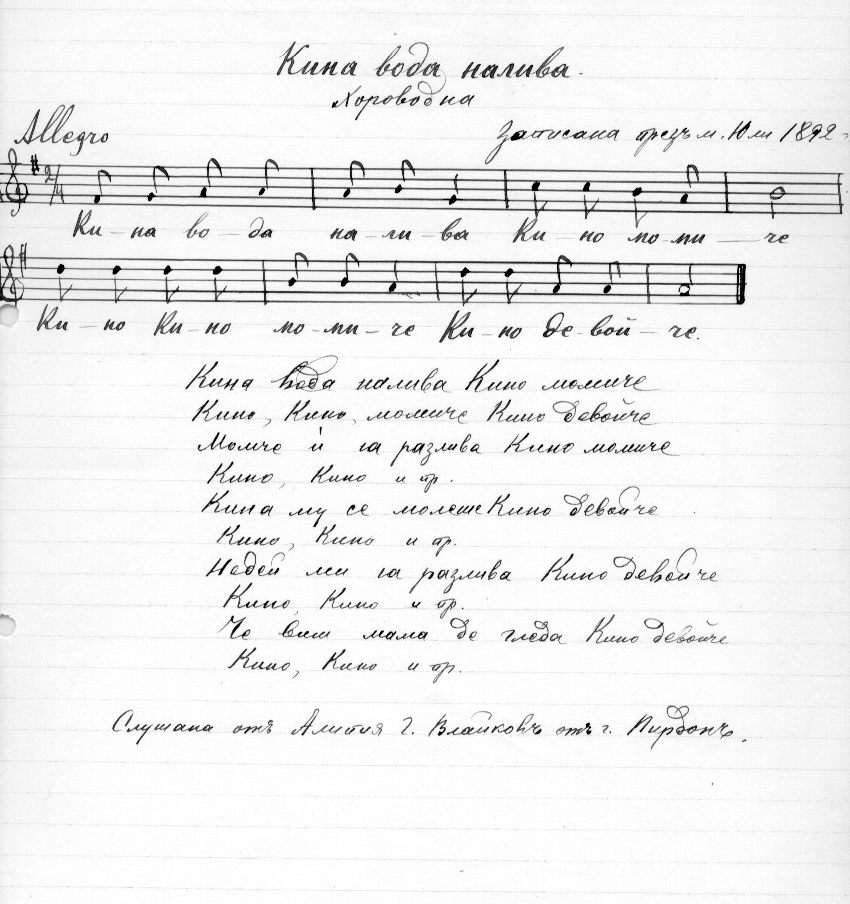 Кина вода налива.
Хороводна
Allegro
Записана презъ м. Юли 1892.
2/4
Ки – на во – да на – ли – ва Ки – но мо – ми — че
Ки – но Ки – но мо – ми – че Ки – но де – вой – че.
Кина вода налива Кино момиче
Кино, Кино, момиче Кино девойче
Момче ѝ га разлива Кино момиче
Кино, Кино и пр.
Кина му се молеше Кино девойче
Кино, Кино и пр.
Недей ми га разлива Кино девойче
Кино, Кино и пр.
Че виш мама де гледа Кино девойче
Кино, Кино и пр.
Слушана отъ Алипия Г. Влайковъ отъ г. Пирдопъ.